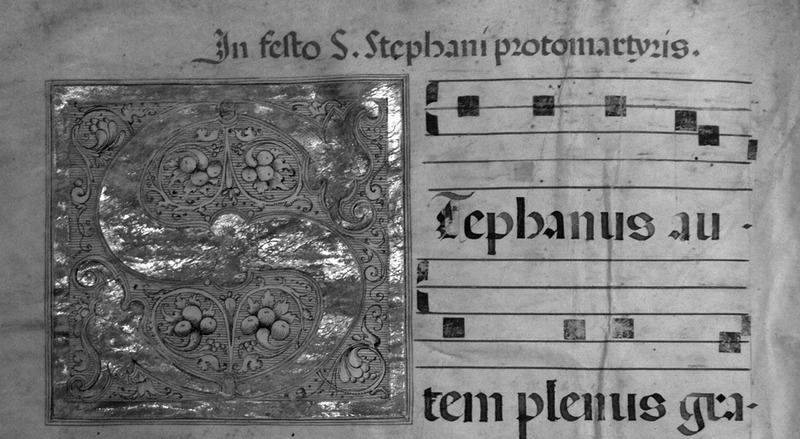 In festo S. Stephani protomartyris.
STephanus au-
tem plenus gra-